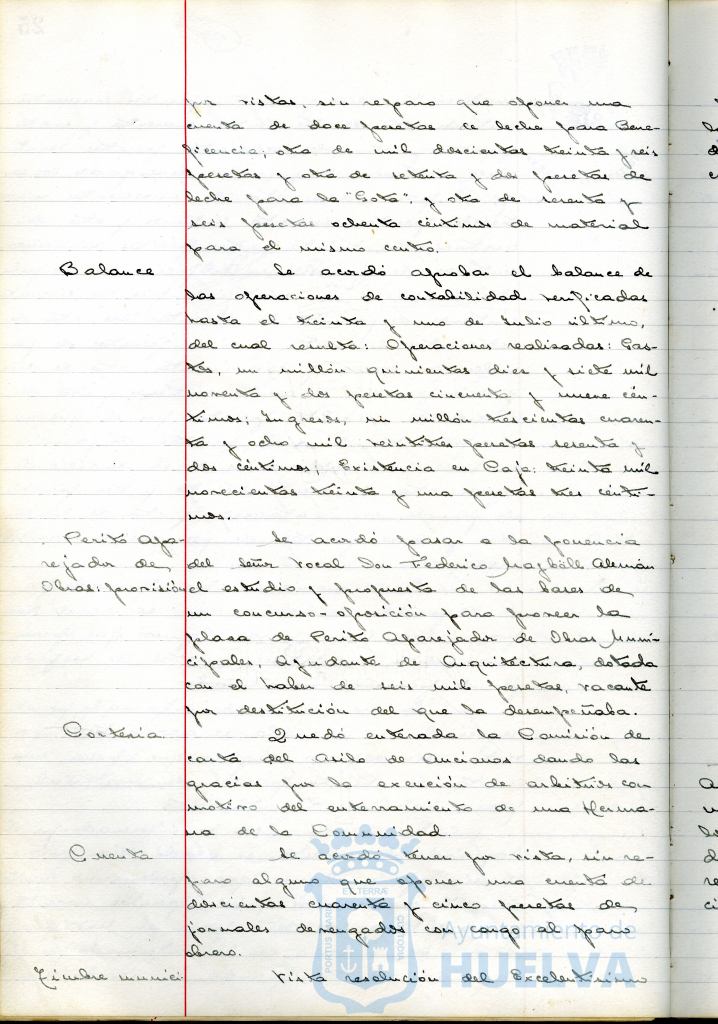 por vistas, sin reparo que oponer una
cuenta de doce pesetas de leche para Bene-
ficencia; otra de mil doscientas treinta y seis
pesetas y otra de setenta y dos pesetas de
leche para la "Gota", y otra de sesenta y
seis pesetas ochenta céntimos de material
para el mismo centro.
Balance
Se acordó aprobar el balance de
las operaciones de contabilidad verificadas
hasta el treinta y uno de Julio último,
del cual resulta: Operaciones realizadas: Gas-
tos, un millón quinientas diez y siete mil
noventa y dos pesetas cincuenta y nueve cén-
timos; Ingresos, un millón trescientas cuaren-
ta y ocho mil veintitres pesetas sesenta y
dos céntimos; Existencia en Caja: treinta mil
novecientas treinta y una pesetas tres cénti-
mos.
Perito Apa-
rejador de
Obras: provisión
Se acordó pasar a la ponencia
del Señor Vocal Don Federico Mayböll Alemán
el estudio y propuesta de las bases de
un concurso-oposición para proveer la
plaza de Perito Aparejador de Obras Muni-
cipales, Ayudante de Arquitectura, dotada
con el haber de seis mil pesetas, vacante
por destitución del que la desempeñaba.
Cortesia
Quedó enterada la Comisión de
carta del Asilo de Ancianos dando las
gracias por la exención de arbitrios con
motivo del enterramiento de una Herma-
na de la Comunidad.
Cuenta
Se acordó tener por vista, sin re-
paro alguno que oponer una cuenta de
doscientas cuarenta y cinco pesetas de
jornales devengados con cargo al paro
obrero.
Timbre munici-
Vista resolución del Excelentísimo
PORTUS MARIS ET TERRÆ CUSTODIA
Ayuntamiento de
HUELVA